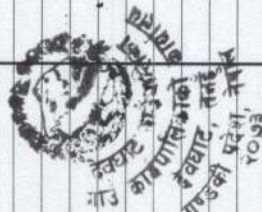 देवघाट
गाउ कार्यपालिकाको
देवघाट, तनहुँ
गण्डकी प्रदेश, नेपाल
२०७३